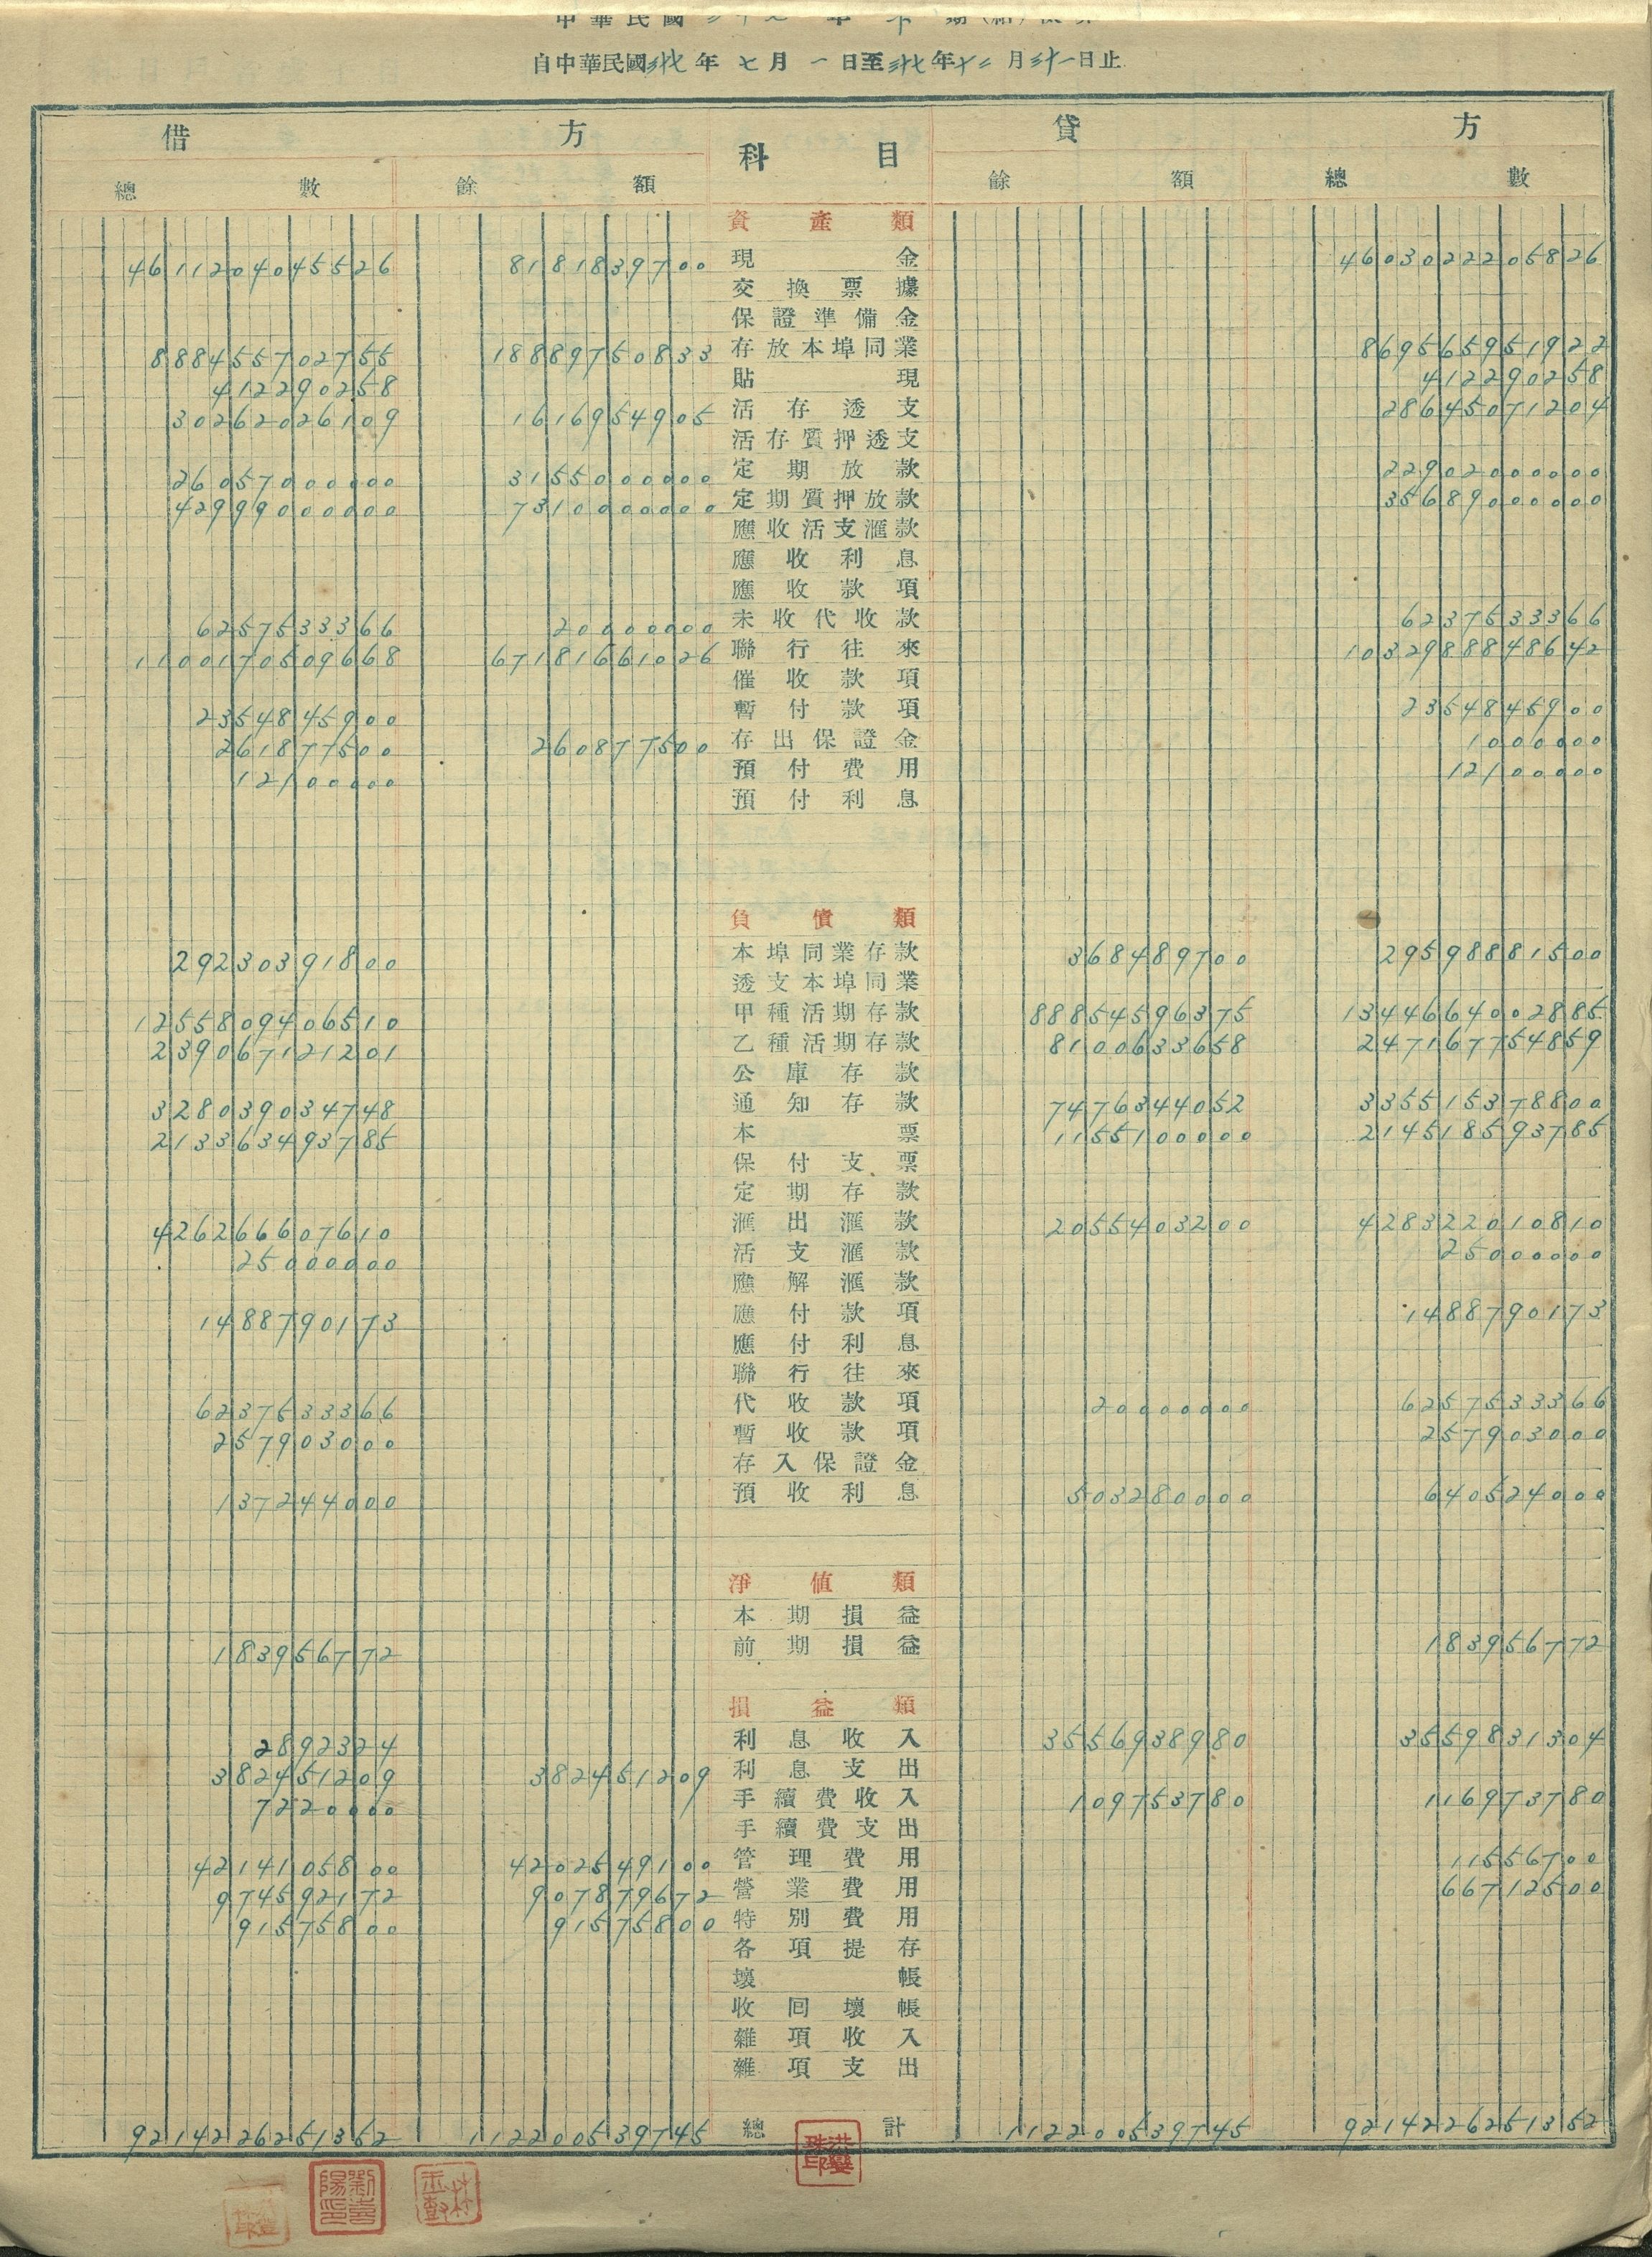 自中華民國卅七年七月一日至卅七年十二月三十一日止
借方 科目 貸方
總數 餘額 餘額 總數
資產類
4611204045526 8181839700 現金 4603022205826
交換票據
保證準備金
888455702755 18889750833 存放本埠同業 869565951922
412290258 貼現 412290258
30262026109 1616954905 活存透支 28645071204
活存質押透支
26057000000 3155000000 定期放款 22902000000
42999000000 7310000000 定期質押放款 35689000000
應收活支滙款
應收利息
應收款項
6257533366 20000000 未收代收款 6237533366
1100170509668 67181661026 聯行往來 1032988848642
催收款項
2354845900 暫付款項 2354845900
261877500 260877500 存出保證金 1000000
12100000 預付費用 12100000
預付利息
負債類
29230391800 本埠同業存款 368489700 29598881500
透支本埠同業
1255809406510 甲種活期存款 88854596375 1344664002885
239067121201 乙種活期存款 8100633658 247167754859
公庫存款
328039034748 通知存款 7476344052 335515378800
213363493785 本票 1155100000 214518593785
保付支票
定期存款
426266607610 滙出滙款 2055403200 428322010810
25000000 活支滙款 25000000
應解滙款
1488790173 應付款項 1488790173
應付利息
聯行往來
6237533366 代收款項 20000000 6257533366
257903000 暫收款項 257903000
存入保證金
137244000 預收利息 503280000 640524000
淨值類
本期損益
183956772 前期損益 183956772
損益類
2892324 利息收入 3556938980 3559831304
382451209 382451209 利息支出
7220000 手續費收入 109753780 116973780
手續費支出
4214105800 4202549100 管理費用 11556700
974592172 907879672 營業費用 66712500
91575800 91575800 特別費用
各項提存
壞帳
收回壞帳
雜項收入
雜項支出
9214226251352 112200539745 總計 112200539745 9214226251352